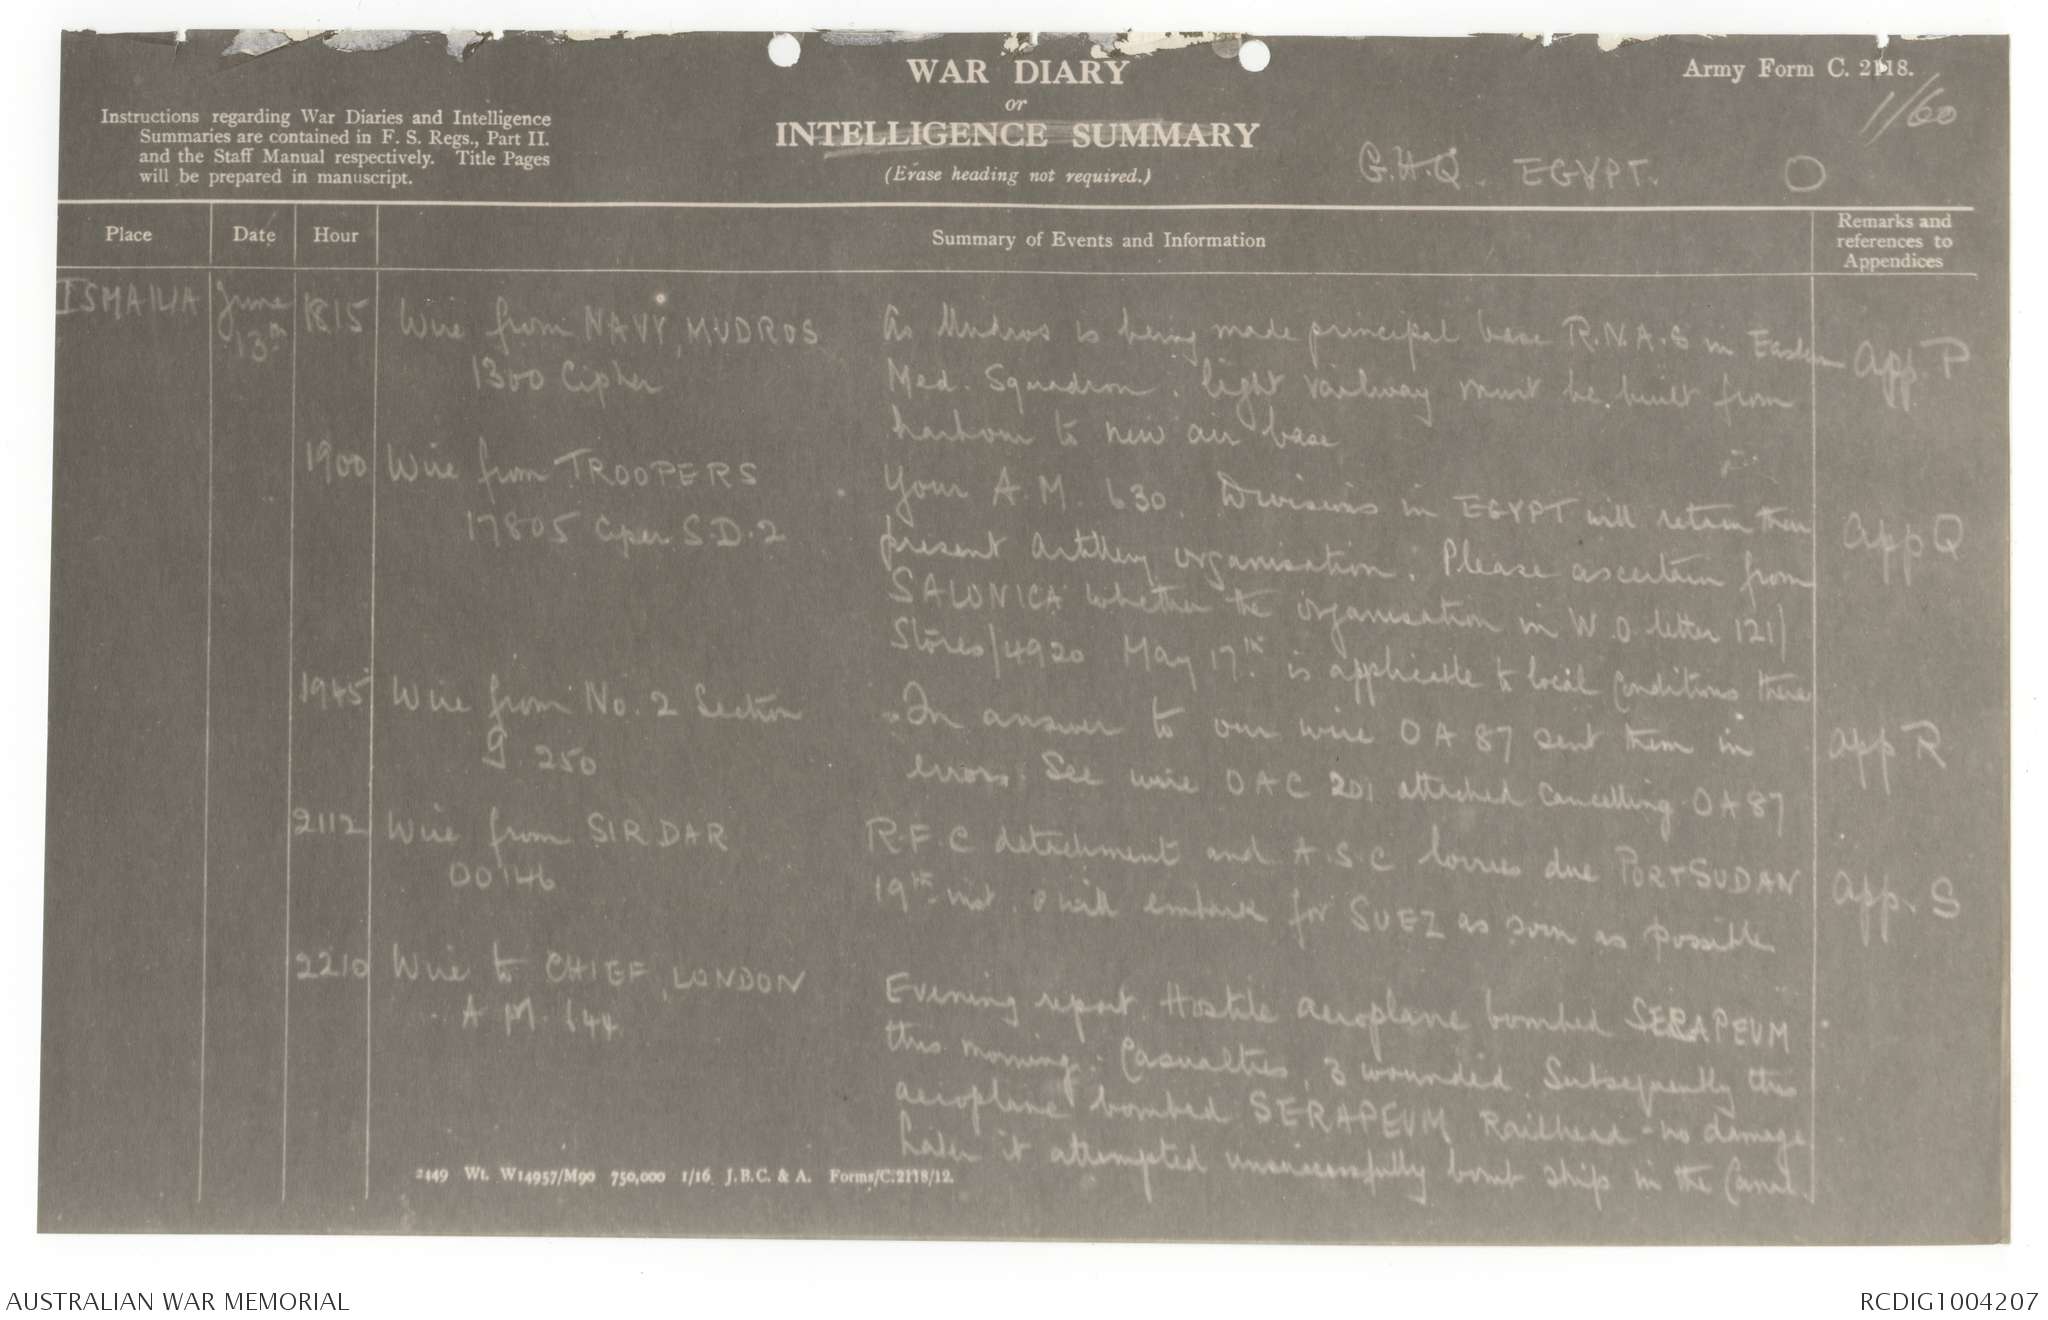 WAR DIARY
or
INTELLIGENCE SUMMARY
(Erase heading not required.)
Army Form C. 2118.
1/60
Instructions regarding War Diaries and Intelligence
Summaries are contained in F. S. Regs., Part II.
and the Staff Manual respectively. Title Pages
will be prepared in manuscript.
G.H.Q. EGYPT. O
Place
Date
Hour
Summary of Events and Information
Remarks and
references to
Appendices
ISMAILIA
June
13th
1815
Wire from NAVY, MUDROS
1300 Cipher
As Mudros is being made principal base R.N.A.S in Eastern
Med. Squadron. light railway must be built from
harbour to new air base
App. P
1900
Wire from TROOPERS
17805 Ciper S.D.2
Your A.M. 630. Divisions in EGYPT will retain their
present artillery organisation. Please ascertain from
SALONICA whether the organisation in W.O letter 121/
Stores/4920 May 17th is applicable to local conditions there
App Q
1945
Wire from No. 2 Section
G. 250
In answer to our wire OA 87 sent them in
error. See wire OAC 201 attached cancelling OA 87
App R
2112
Wire from SIRDAR
00146
R.F.C detachment and A.S.C lorries due PORT SUDAN
19th inst. & will embark for SUEZ as soon as possible
App. S
2210
Wire to CHIEF, LONDON
A.M. 644
Evening report. Hostile aeroplane bombed SERAPEUM
this morning. Casualties, 3 wounded. Subsequently this
aeroplane bombed SERAPEUM Railhead - no damage
Later it attempted unsuccessfully bomb ship in the Canal.
2449 Wt. W14957/M90 750,000 1/16 J.B.C. & A. Forms/C.2118/12.
AUSTRALIAN WAR MEMORIAL
RCDIG1004207